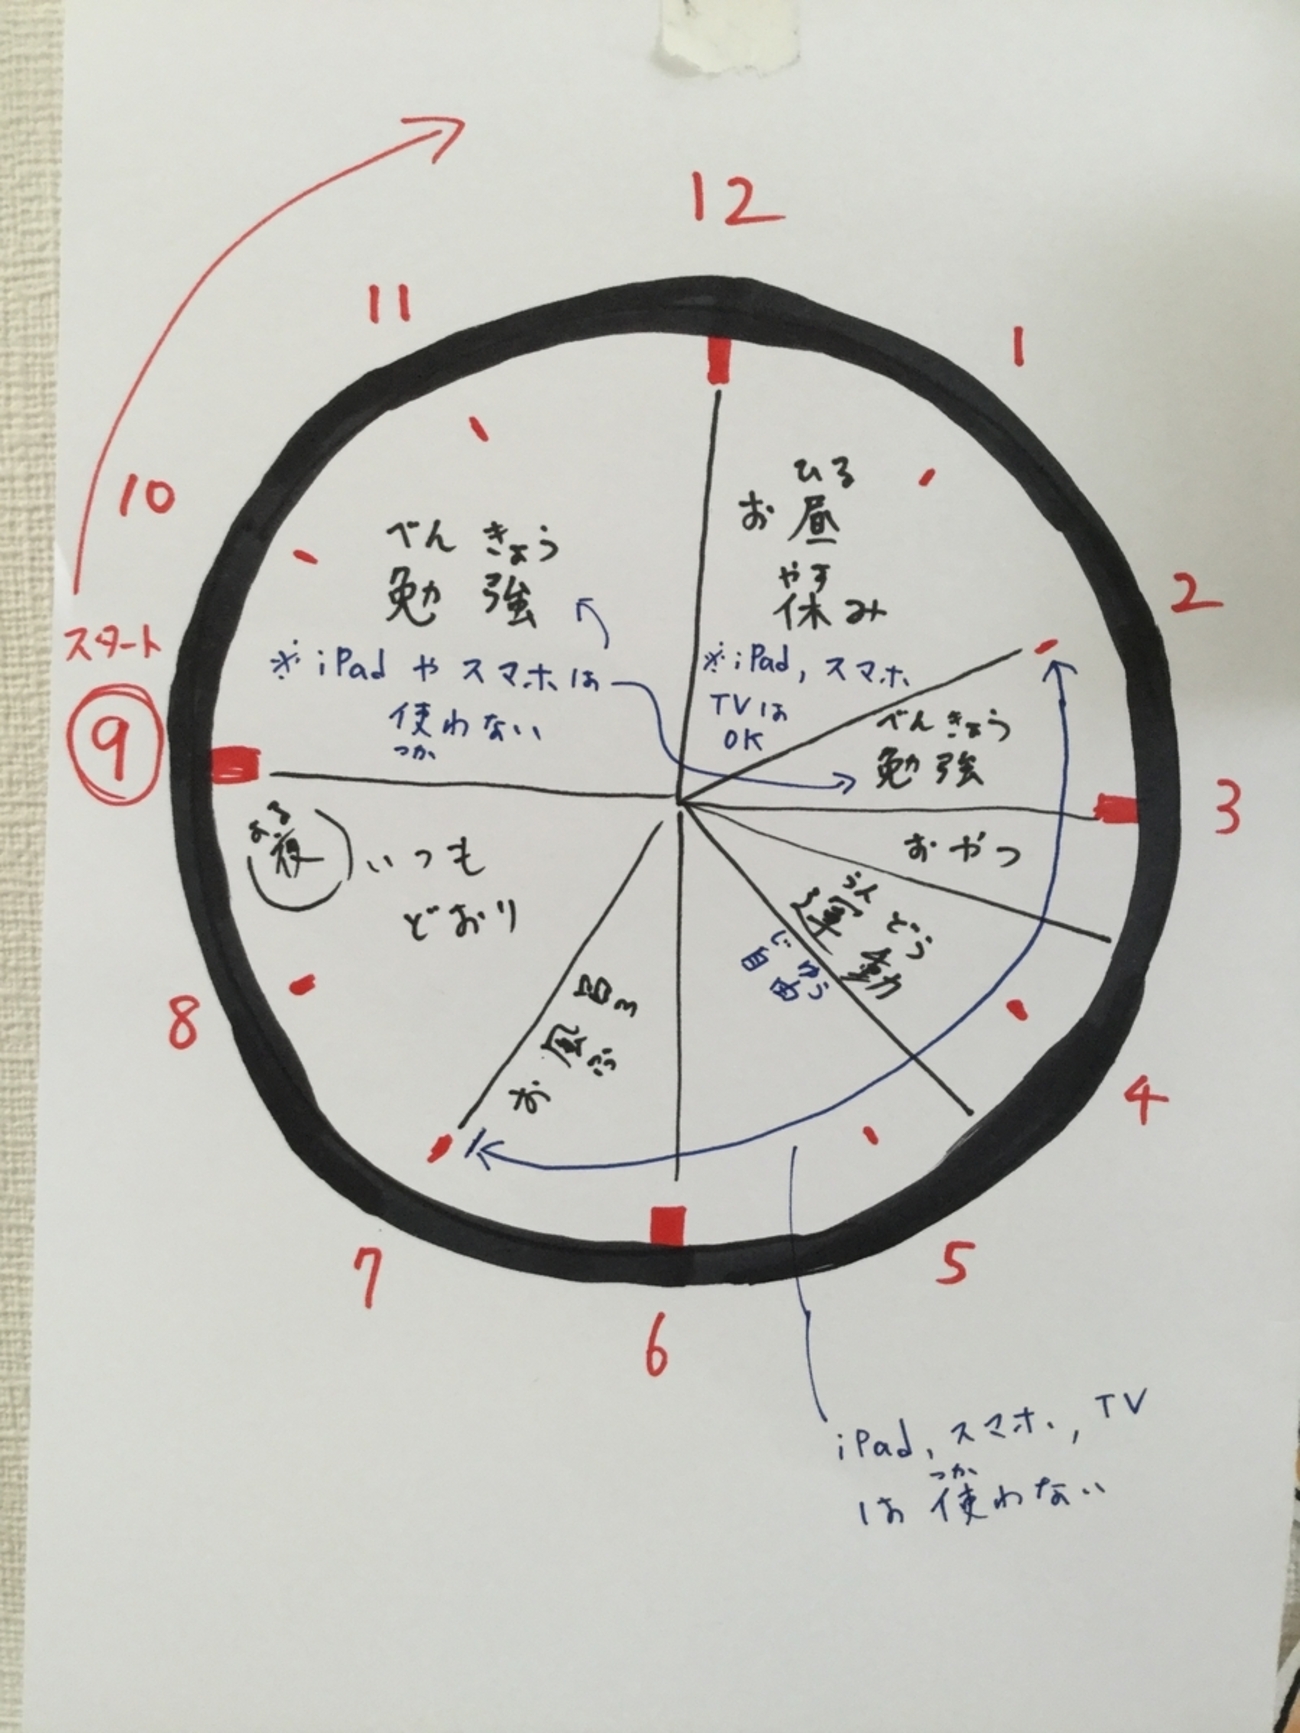 12
11
1
10
2
スタート
9
3
8
4
7
5
6
べん きょう
勉 強
※iPad や スマホは
使わない
つか
ひる
お 昼
やす
休み
※iPad, スマホ
TVは
OK
べんきょう
勉強
おやつ
うん どう
運動
じ ゆう
自由
お風呂
ふろ
よる
夜
いつも
どおり
iPad, スマホ, TV
つか
は 使わない